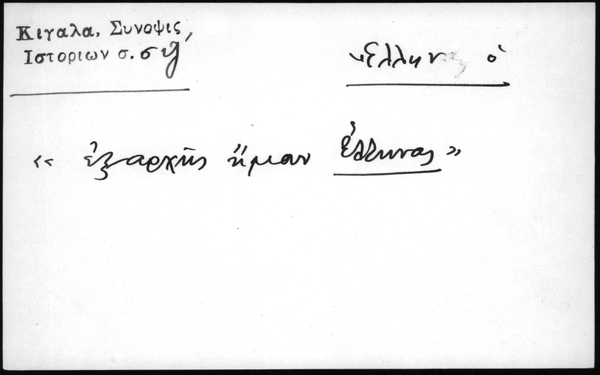 Κιγαλα, Συνοψις,
Ιστοριων σ. σιθ
Ἕλληνας ὁ
« ἐξαρχῆς ἤμαν Ἕλληνας »